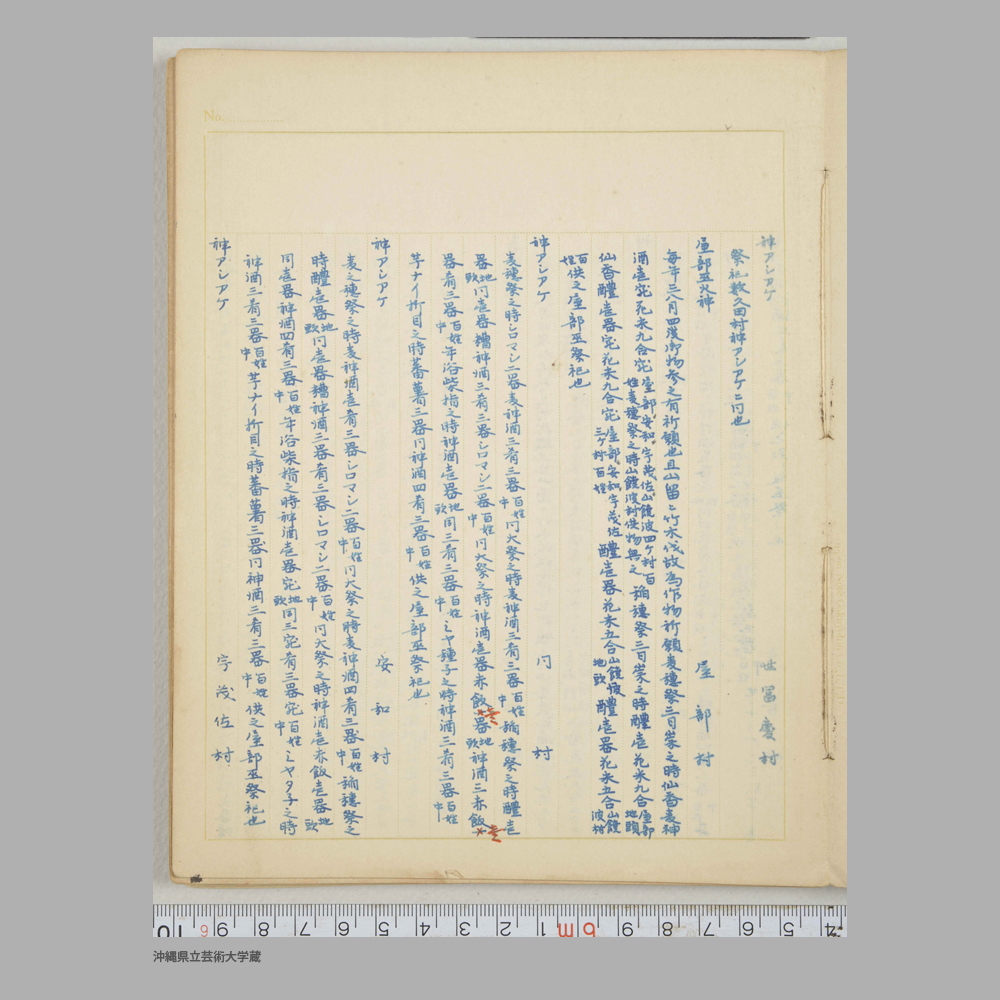 No.
神アシアケ 世冨慶村
祭祀数久田村神アシアケニ同也
屋部巫火神 屋部村
毎年三八月四度御物参之有祈願也且山留ニ竹木伐故為作物祈願麦穂祭三日崇之時仙香麦神
酒壱宛花米九合宛 屋部安和宇茂佐山饒波四ケ村百姓麦穂祭之時山饒波村供物無之 稲穂祭三日崇之時醴壱花米九合 屋部地頭
仙香醴壱器宛花米九合宛 屋部安和宇茂佐三ケ村百姓 醴壱器花米五合 山饒波地頭 醴壱器花米五合 山饒波村
百姓供之屋部巫祭祀也
神アシアケ 同村
麦穂祭之時シロマシ二器麦神酒三肴三器 百姓中 同大祭之時麦神酒三肴三器 百姓中 稲穂祭之時醴壱
器 地頭 同壱器糟神酒三肴三器シロマシ二器 百姓中 同大祭之時神酒壱器赤飯×壱器 地頭 神酒三赤飯×壱
器肴三器 百姓中 年浴柴指之時神酒壱器 地頭 同三肴三器 百姓中 ミヤ種子之時神酒三肴三器 百姓中
芋ナイ折目之時蕃薯三器同神酒四肴三器 百姓中 供之屋部巫祭祀也
神アシアケ 安和村
麦之穂祭之時麦神酒壱肴三器シロマシ二器 百姓中 同大祭之時麦神酒四肴三器 百姓中 稲穂祭之
時醴壱器 地頭 同壱器糟神酒三器肴三器シロマシ二器 百姓中 同大祭之時神酒壱赤飯壱器 地頭
同壱器神酒四肴三器 百姓中 年浴柴指之時神酒壱器宛 地頭 同三宛肴三器宛 百姓中 ミヤタ子之時
神酒三肴三器 百姓中 芋ナイ折目之時蕃薯三器同神酒三肴三器 百姓中 供之屋部巫祭祀也
神アシアケ 宇茂佐村
沖縄県立芸術大学蔵